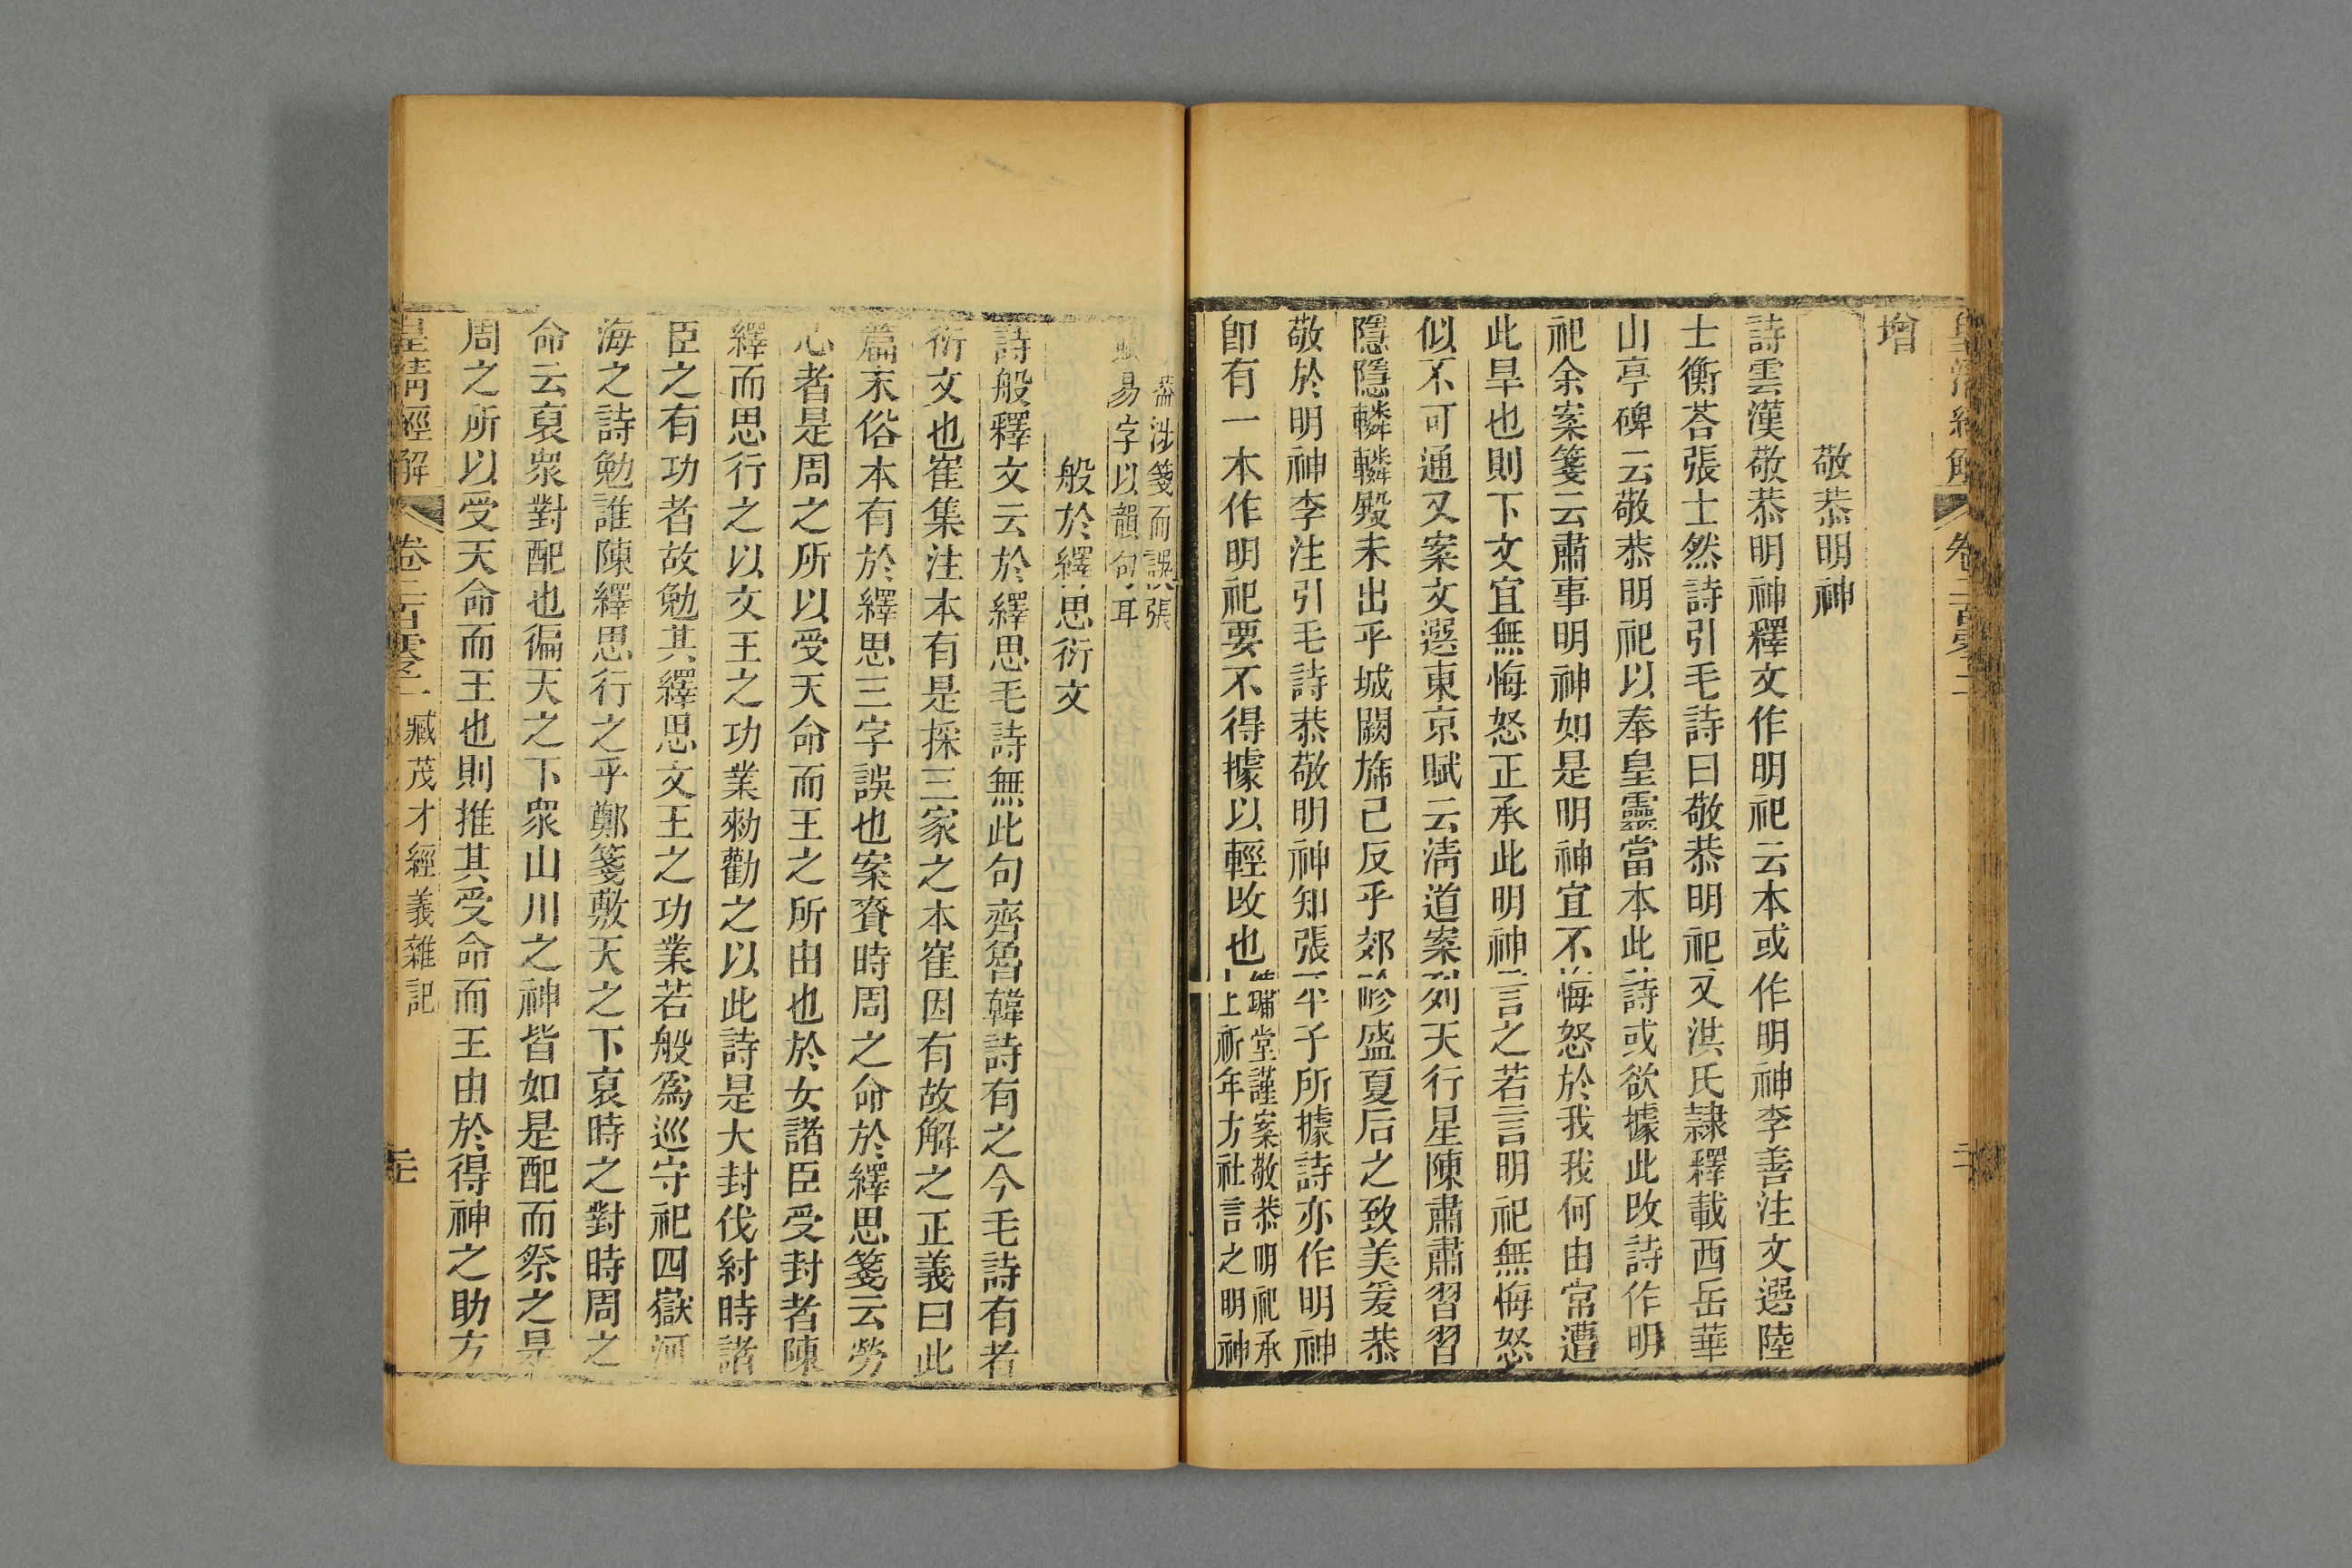 皇清經解 卷二百零二
增
敬恭明神
詩雲漢敬恭明神釋文作明祀云本或作明神李善注文選陸
士衡荅張士然詩引毛詩曰敬恭明祀又洪氏隸釋載西岳華
山亭碑云敬恭明祀以奉皇靈當本此詩或欲據此改詩作明
祀余案箋云肅事明神如是明神宜不悔怒於我我何由常遭
此旱也則下文宜無悔怒正承此明神言之若言明祀無悔怒
似不可通又案文選東京賦云清道案列天行星陳肅肅習習
隱隱轔轔殿未出乎城闕旆已反乎郊畛盛夏后之致美爰恭
敬於明神李注引毛詩恭敬明神知張平子所據詩亦作明神
卽有一本作明祀要不得據以輕改也
鏞堂謹案敬恭明祀承
上祈年方社言之明神
涉箋而誤張
易字以韻句耳
般於繹思衍文
詩般釋文云於繹思毛詩無此句齊魯韓詩有之今毛詩有者
衍文也崔集注本有是採三家之本崔因有故解之正義曰此
篇末俗本有於繹思三字誤也案賚時周之命於繹思箋云勞
心者是周之所以受天命而王之所由也於女諸臣受封者陳
繹而思行之以文王之功業勑勸之以此詩是大封伐紂時諸
臣之有功者故勉其繹思文王之功業若般爲巡守祀四嶽河
海之詩勉誰陳繹思行之乎鄭箋敷天之下裒時之對時周之
命云裒衆對配也徧天之下衆山川之神皆如是配而祭之是
周之所以受天命而王也則推其受命而王由於得神之助方
皇清經解 卷二百零二 臧茂才經義雜記